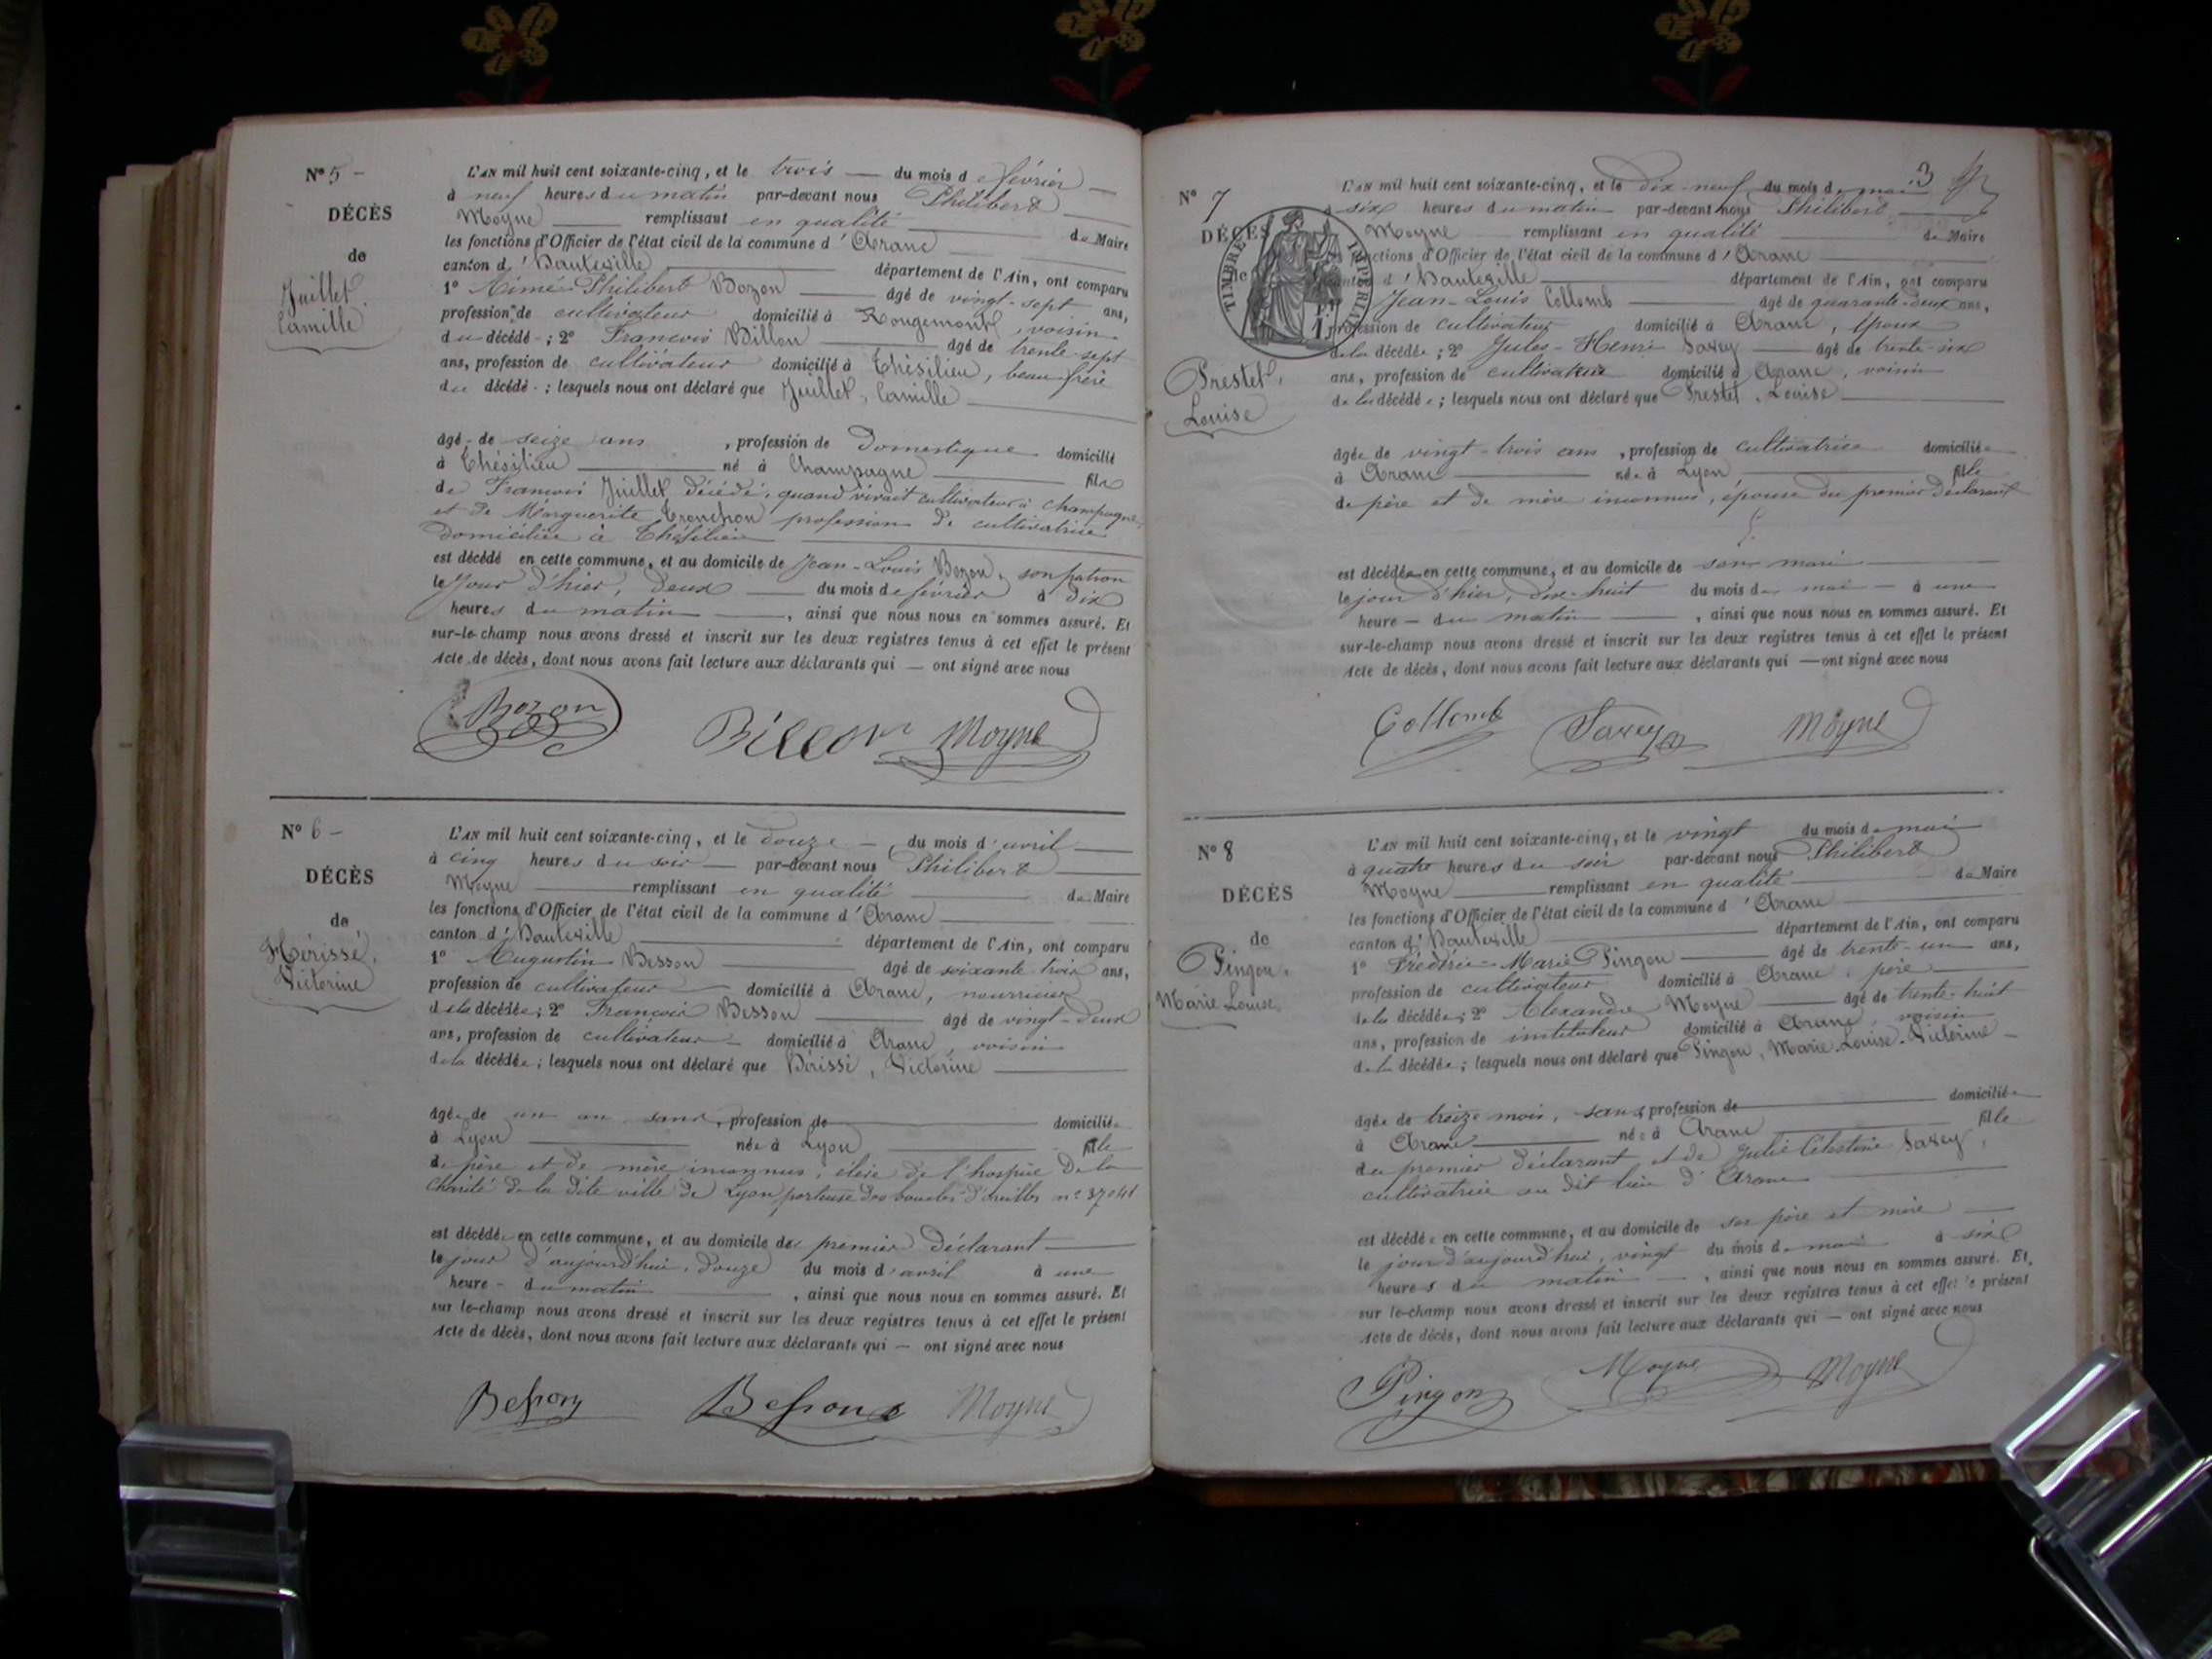 N° 5 -
DÉCÈS
de
Juillet
Camille
L'AN mil huit cent soixante-cinq, et le trois — du mois de février —
à neuf heures du matin par-devant nous Philibert
Moyne remplissant en qualité de Maire
les fonctions d'Officier de l'état civil de la commune d'Aranc
canton d'Hauteville département de l'Ain, ont comparu
1° Aimé-Philibert Bozon âgé de vingt-sept ans,
profession de cultivateur domicilié à Rougemont, voisin
du décédé ; 2° François Billon âgé de trente-sept
ans, profession de cultivateur domicilié à Thésilieu, beau-frère
du décédé ; lesquels nous ont déclaré que Juillet, Camille
âgé de seize ans, profession de Domestique domicilié
à Thésilieu né à Champagne fils
de François Juillet décédé, quand vivait cultivateur à Champagne
et de Marguerite Tronchon profession de cultivatrice
domiciliée à Thésilieu
est décédé en cette commune, et au domicile de Jean-Louis Bozon, son patron
le jour d'hier, deux — du mois de février à dix
heures du matin, ainsi que nous nous en sommes assuré. Et
sur-le-champ nous avons dressé et inscrit sur les deux registres tenus à cet effet le présent
Acte de décès, dont nous avons fait lecture aux déclarants qui — ont signé avec nous
Bozon Billon Moyne
N° 6 -
DÉCÈS
de
Hérissé,
Victorine
L'AN mil huit cent soixante-cinq, et le douze —, du mois d'avril
à cinq heures du soir — par-devant nous Philibert
Moyne remplissant en qualité de Maire
les fonctions d'Officier de l'état civil de la commune d'Aranc
canton d'Hauteville département de l'Ain, ont comparu
1° Augustin Besson âgé de soixante-trois ans,
profession de cultivateur domicilié à Aranc, nourricier
de la décédée ; 2° François Besson âgé de vingt-deux
ans, profession de cultivateur domicilié à Aranc, voisin
de la décédée ; lesquels nous ont déclaré que Hérissé, Victorine
âgée de un an sans, profession de domiciliée
à Lyon née à Lyon fille
de père et de mère inconnus, élève de l'hospice de la
Charité de la dite ville de Lyon porteuse des boucles d'oreilles n° 37041
est décédée en cette commune, et au domicile du premier déclarant
le jour d'aujourd'hui, douze du mois d'avril à une
heure - du matin, ainsi que nous nous en sommes assuré. Et
sur le-champ nous avons dressé et inscrit sur les deux registres tenus à cet effet le présent
Acte de décès, dont nous avons fait lecture aux déclarants qui — ont signé avec nous
Besson Besson Moyne
3
N° 7
DÉCÈS
de
TIMBRE IMPERIAL
Prestet,
Louise
L'AN mil huit cent soixante-cinq, et le dix-neuf du mois de mai
à six heures du matin par-devant nous Philibert
Moyne remplissant en qualité de Maire
les fonctions d'Officier de l'état civil de la commune d'Aranc
canton d'Hauteville département de l'Ain, ont comparu
Jean-Louis Collomb âgé de quarante-deux ans,
profession de cultivateur domicilié à Aranc, époux
de la décédée ; 2° Jules-Henri Savey âgé de trente-six
ans, profession de cultivateur domicilié à Aranc, voisin
de la décédée ; lesquels nous ont déclaré que Prestet, Louise
âgée de vingt-trois ans, profession de cultivatrice domiciliée
à Aranc née à Lyon fille
de père et de mère inconnus, épouse du premier déclarant
est décédée en cette commune, et au domicile de son mari
le jour d'hier, dix-huit du mois de mai — à une
heure - du matin, ainsi que nous nous en sommes assuré. Et
sur-le-champ nous avons dressé et inscrit sur les deux registres tenus à cet effet le présent
Acte de décès, dont nous avons fait lecture aux déclarants qui — ont signé avec nous
Collomb Savey Moyne
N° 8
DÉCÈS
de
Pingon,
Marie Louise
L'AN mil huit cent soixante-cinq, et le vingt du mois de mai
à quatre heures du soir par-devant nous Philibert
Moyne remplissant en qualité de Maire
les fonctions d'Officier de l'état civil de la commune d'Aranc
canton d'Hauteville département de l'Ain, ont comparu
1° Frédéric-Marie Pingon âgé de trente-un ans,
profession de cultivateur domicilié à Aranc, père
de la décédée ; 2° Alexandre Moyne âgé de trente-huit
ans, profession de instituteur domicilié à Aranc, voisin
de la décédée ; lesquels nous ont déclaré que Pingon, Marie-Louise-Victorine
âgée de treize mois, sans profession de domiciliée
à Aranc née à Aranc fille
du premier déclarant et de Julie Célestine Savey,
cultivatrice au dit lieu d'Aranc
est décédée en cette commune, et au domicile de ses père et mère
le jour d'aujourd'hui, vingt du mois de mai à six
heures du matin, ainsi que nous nous en sommes assuré. Et
sur le-champ nous avons dressé et inscrit sur les deux registres tenus à cet effet le présent
Acte de décès, dont nous avons fait lecture aux déclarants qui — ont signé avec nous
Pingon Moyne Moyne